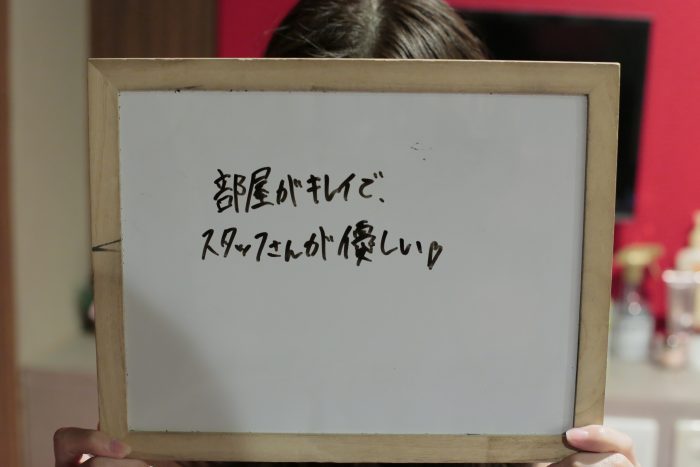 部屋がキレイで、
スタッフさんが優しい♡